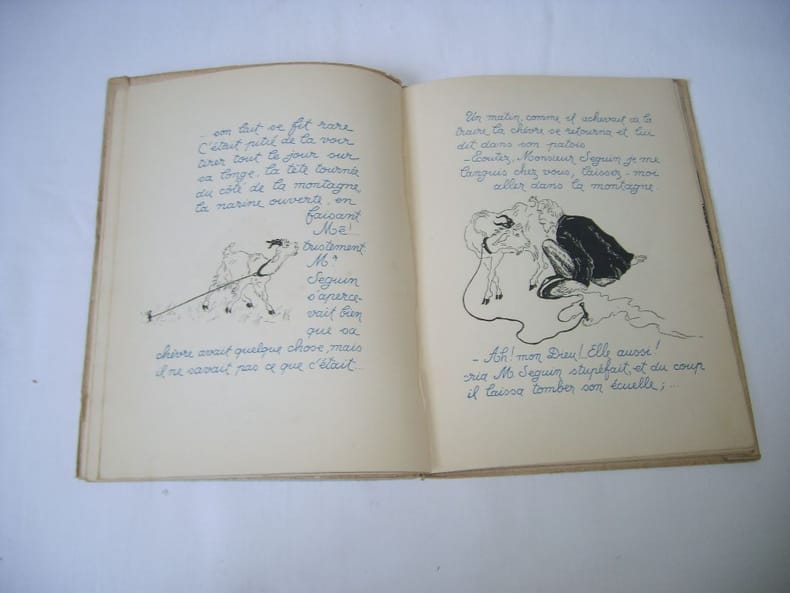 ... son lait se fit rare
C'était pitié de la voir
tirer tout le jour sur
sa longe, la tête tournée
du côté de la montagne,
la narine ouverte, en
faisant
Mê!
tristement.
Mr
Seguin
s'aperce-
vait bien
que sa
chèvre avait quelque chose, mais
il ne savait pas ce que c'était...
Un matin, comme il achevait de la
traire, la chèvre se retourna et lui
dit dans son patois
- Écoutez, Monsieur Seguin, je me
languis chez vous, laissez-moi
aller dans la montagne.
- Ah! mon Dieu!.. Elle aussi!
cria Mr Seguin stupéfait, et du coup
il laissa tomber son écuelle; ...